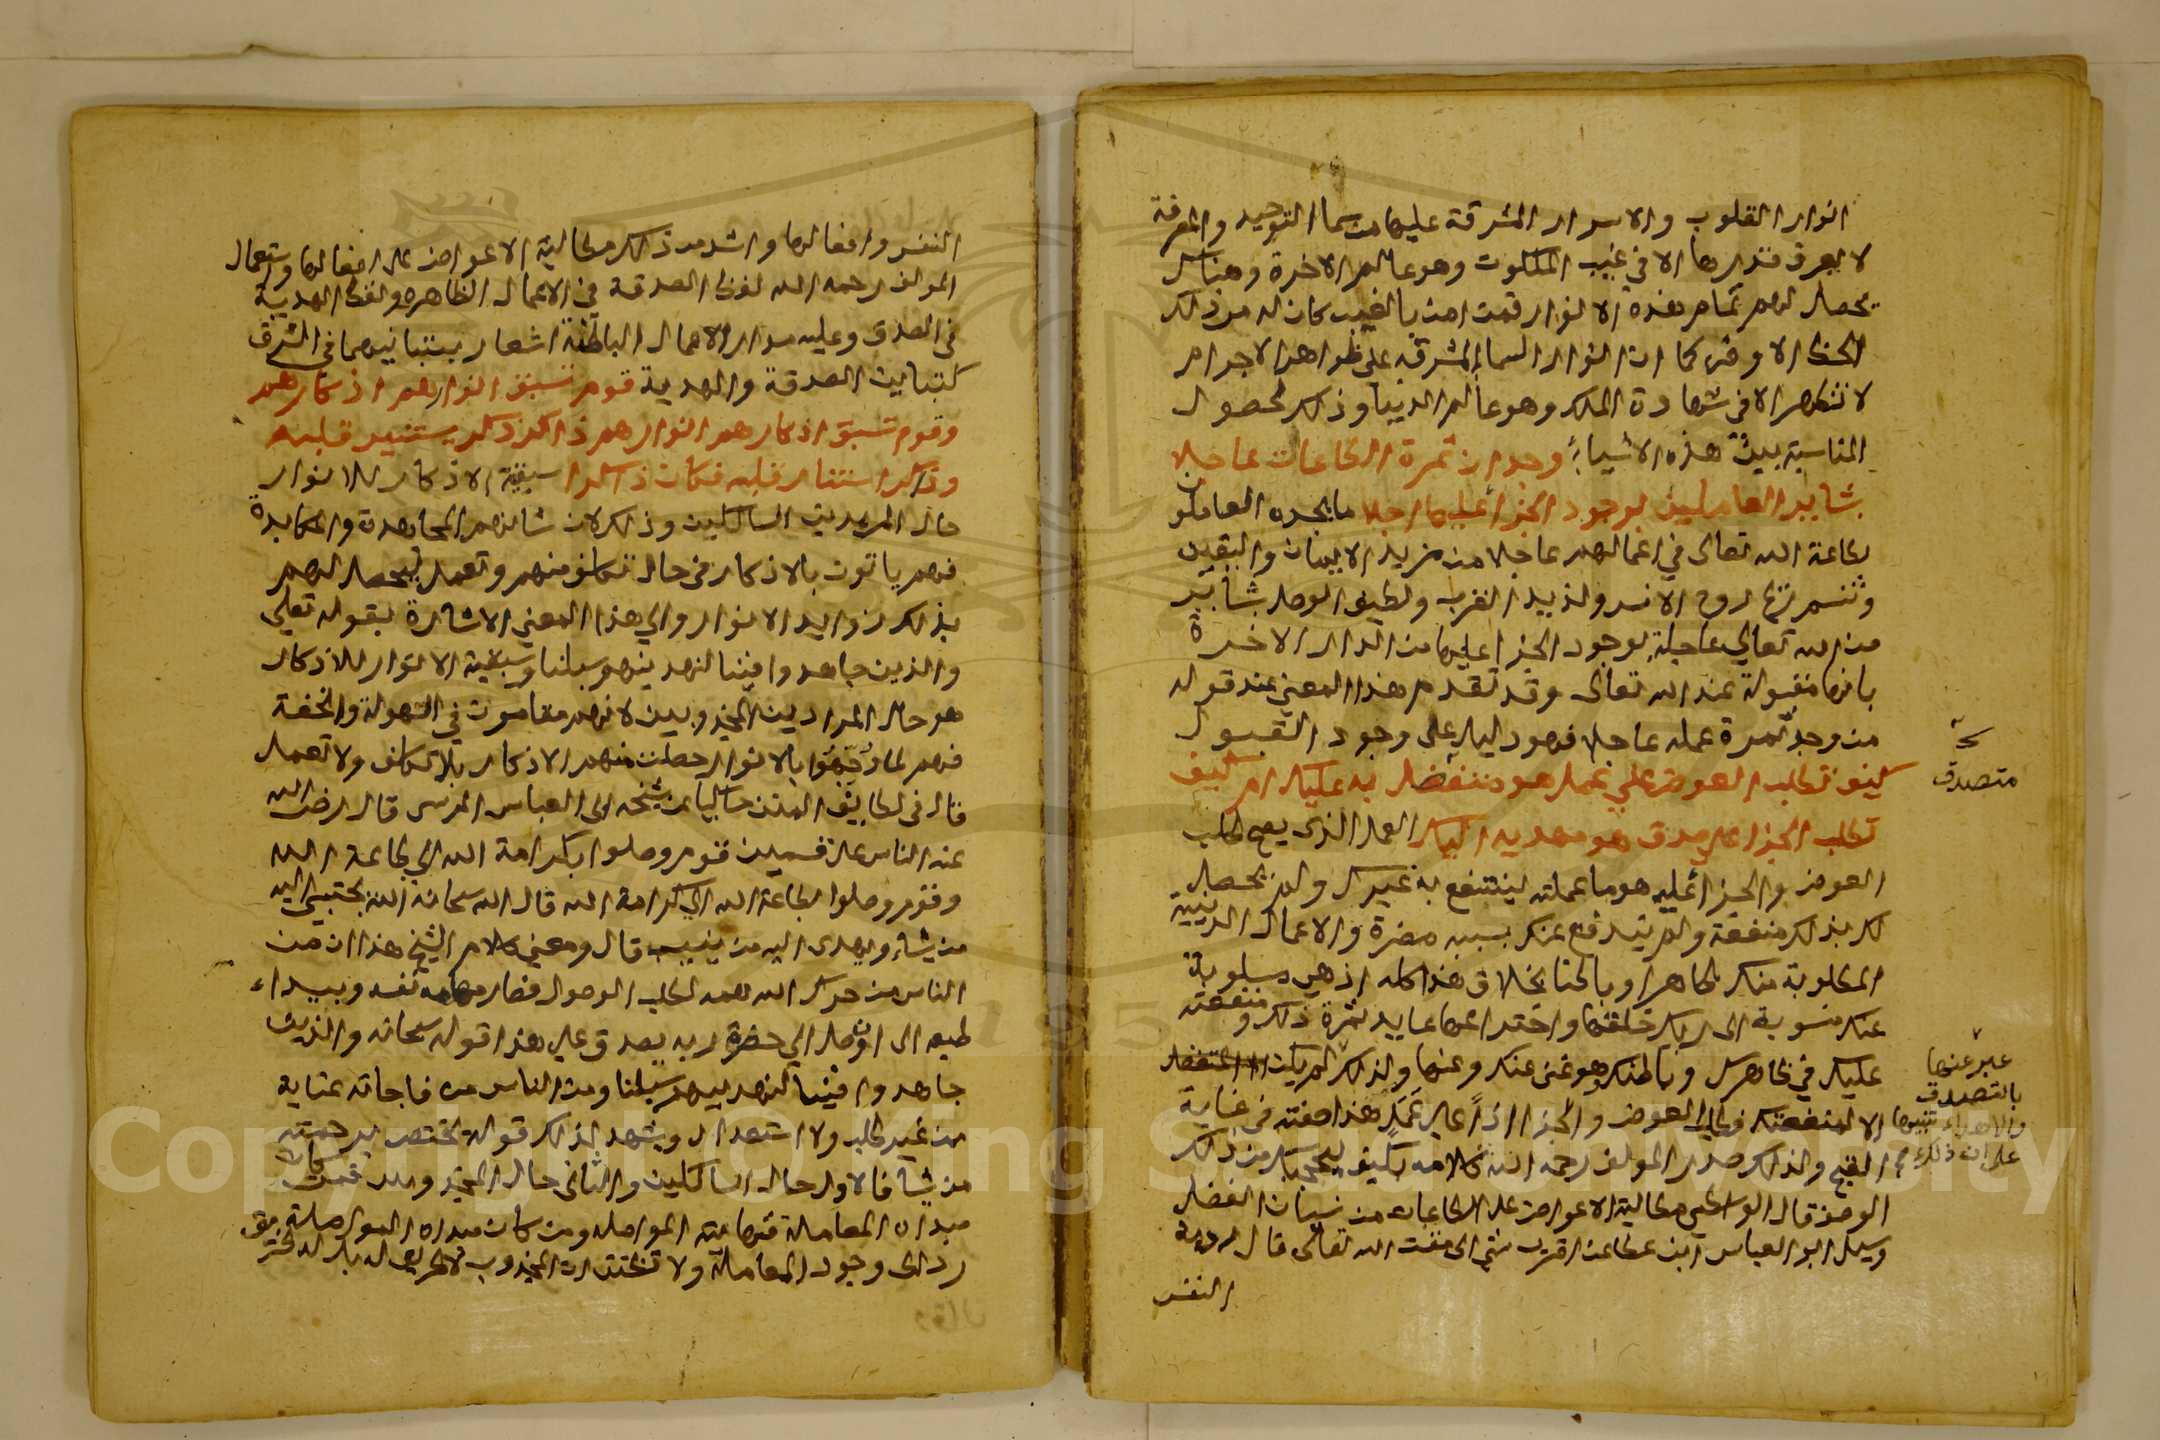 انوار القلوب والاسرار المشرقة عليها من سما التوحيد والمعرفة
لا يعرف قدرها الا في غيب الملكوت وهو عالم الاخرة وهناك
يحصل لهم تمام هذه الانوار فمن امن بالغيب كان له من ذلك
الحظ الاوفر كما ان انوار السماء المشرقة على ظواهر الاجرام
لا تظهر الا في شهادة الملك وهو عالم الدنيا وذلك لحصول
المناسبة بين هذه الاشياء وجدان ثمرة الطاعات عاجلا
بشاير العاملين بوجود الجزا عليها اجلا ما يجده العاملون
بطاعة الله تعالى في اعمالهم عاجلا من مزيد الايمان واليقين
وتنسم روح الانس ولذيذ القرب ولطيف الوصل بشاير
من الله تعالي عاجلة بوجود الجزا عليها من الدار الاخرة
بانها مقبولة عند الله تعالى وقد تقدم هذا المعني عند قوله
من وجد ثمرة عمله عاجلا فهو دليل على وجود القبول
كيف تطلب العوض علي عمل هو متفضل به عليك ام كيف
متصدق
تطلب الجزا على صدق هو مهديه اليك العمل الذي يصح طلب
العوض والجزا عليه هو ما عملته لينتفع به غيرك ولم يحصل
لك بذلك منفعة ولم يندفع عنك بسببه مضرة والاعمال الدينية
المطلوبة منك ظاهرا وباطنا بخلاف هذا كله اذ هي مسلوبة
عنك منسوبة الى ربك خلقها واختراعها عايد ثمرة ذلك ومنفعته
عليك في ظاهرك وباطنك وهو غني عنك وعنها ولذلك لم يكن المتفضل
عبر عنها
بالتصدق
والاهداء تنبيها
على ان ذلك
الا لمنفعتك فطلب العوض والجزا اذاً على عمل هذا صفته في غاية
القبح ولذلك صدر المولف رحمه الله كلامه بكيف ليعجبك من ذلك
الوصف قال الواسطي مطالبة الاعواض على الطاعات من نسيان الفضل
وسيل ابو العباس ابن عطا عن اقرب شي الى مقت الله تعالى قال رؤية
النفس
النفس وافعالها واشد من ذلك مطالبة الاعواض على افعالها واستعمال
المولف رحمه الله لفظ الصدقة في الاعمال الظاهره ولفظ الهدية
في الصدق وعليه مدار الاعمال الباطنة اشعار بتباينهما في الشرف
كتباين الصدقة والهدية قوم تسبق انوارهم اذكارهم
وقوم تسبق اذكارهم انوارهم ذاكر ذكر ليستنير قلبه
وذاكر استنار قلبه فكان ذاكرا سبقية الاذكار للانوار
حال المريدين السالكين وذلك لان شانهم المجاهدة والمكابدة
فهم ياتون بالاذكار في حال تكلف منهم وتعمل ليحصل لهم
بذلك زوايد الانوار والي هذا المعني الاشارة بقوله تعلى
والذين جاهدوا فينا لنهدينهم سبلنا وسبقية الانوار للاذكار
هو حال المرادين المجذوبين لانهم مقامون في السهولة والخفة
فهم لما وُجهوا بالانوار حصلت منهم الاذكار بلا تكلف ولا تعمل
قال في لطايف المنن حاكيا عن شيخه ابي العباس المرسي قال رضي الله
عنه الناس على قسمين قوم وصلوا بكرامة الله الي طاعة الله
وقوم وصلوا بطاعة الله الي كرامة الله قال الله سبحانه الله يجتبي اليه
من يشاء ويهدي اليه من ينيب قال ومعني كلام الشيخ هذا ان من
الناس من حرك الله همه لطلب الوصول فصار يطوي مهامه نفسه وبيداء
طبعه الى ان وصل الي حضرة ربه يصدق على هذا قوله سبحانه والذين
جاهدوا فينا لنهدينهم سبلنا ومن الناس من فاجاته عناية
من غير طلب ولا استعداد ويشهد لذلك قوله يختص برحمته
من يشا فالاول حال السالكين والثاني حال المجذوبين فمن كان
مبداه المعاملة فنهايته المواصله ومن كان مبداه المواصلة
رد الى وجود المعاملة ولا تظنن ان المجذوب لا طريق له بل له طريق
وقال